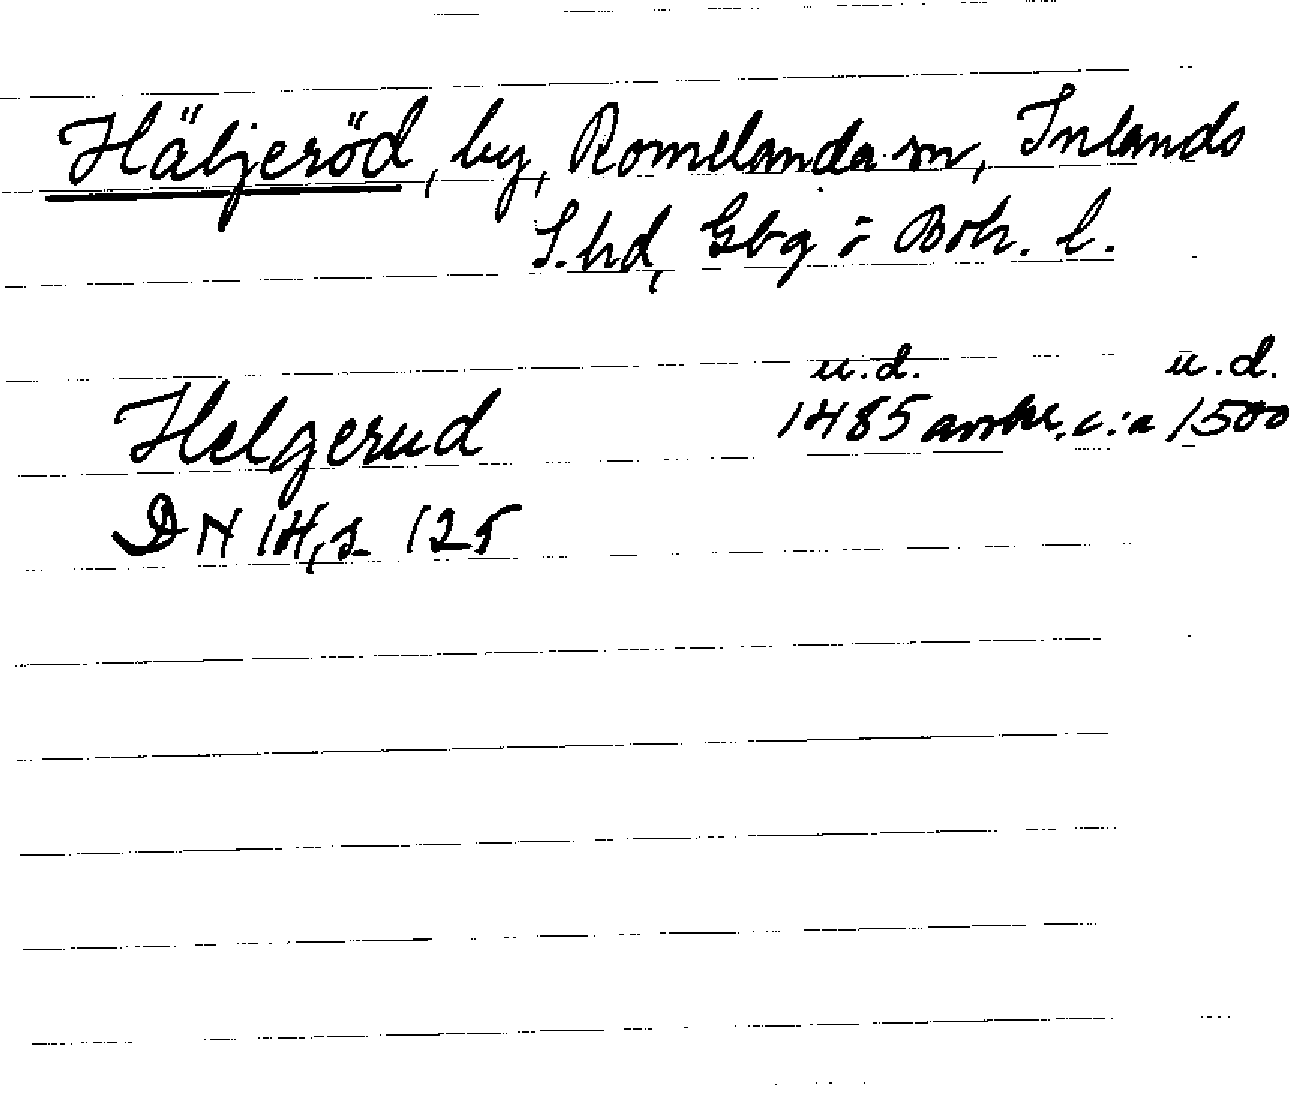 Häljeröd, by, Romelanda sn, Inlands
S. hd, Gbg o Boh. l.
u.d. u.d.
Helgerud 1485 avskr. c:a 1500
DN 14, s 125